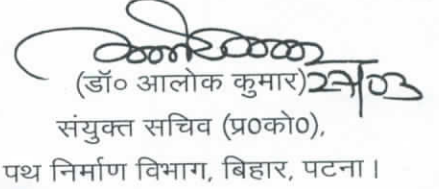 (डॉ० आलोक कुमार) 27/03
संयुक्त सचिव (प्र०को०),
पथ निर्माण विभाग, बिहार, पटना।